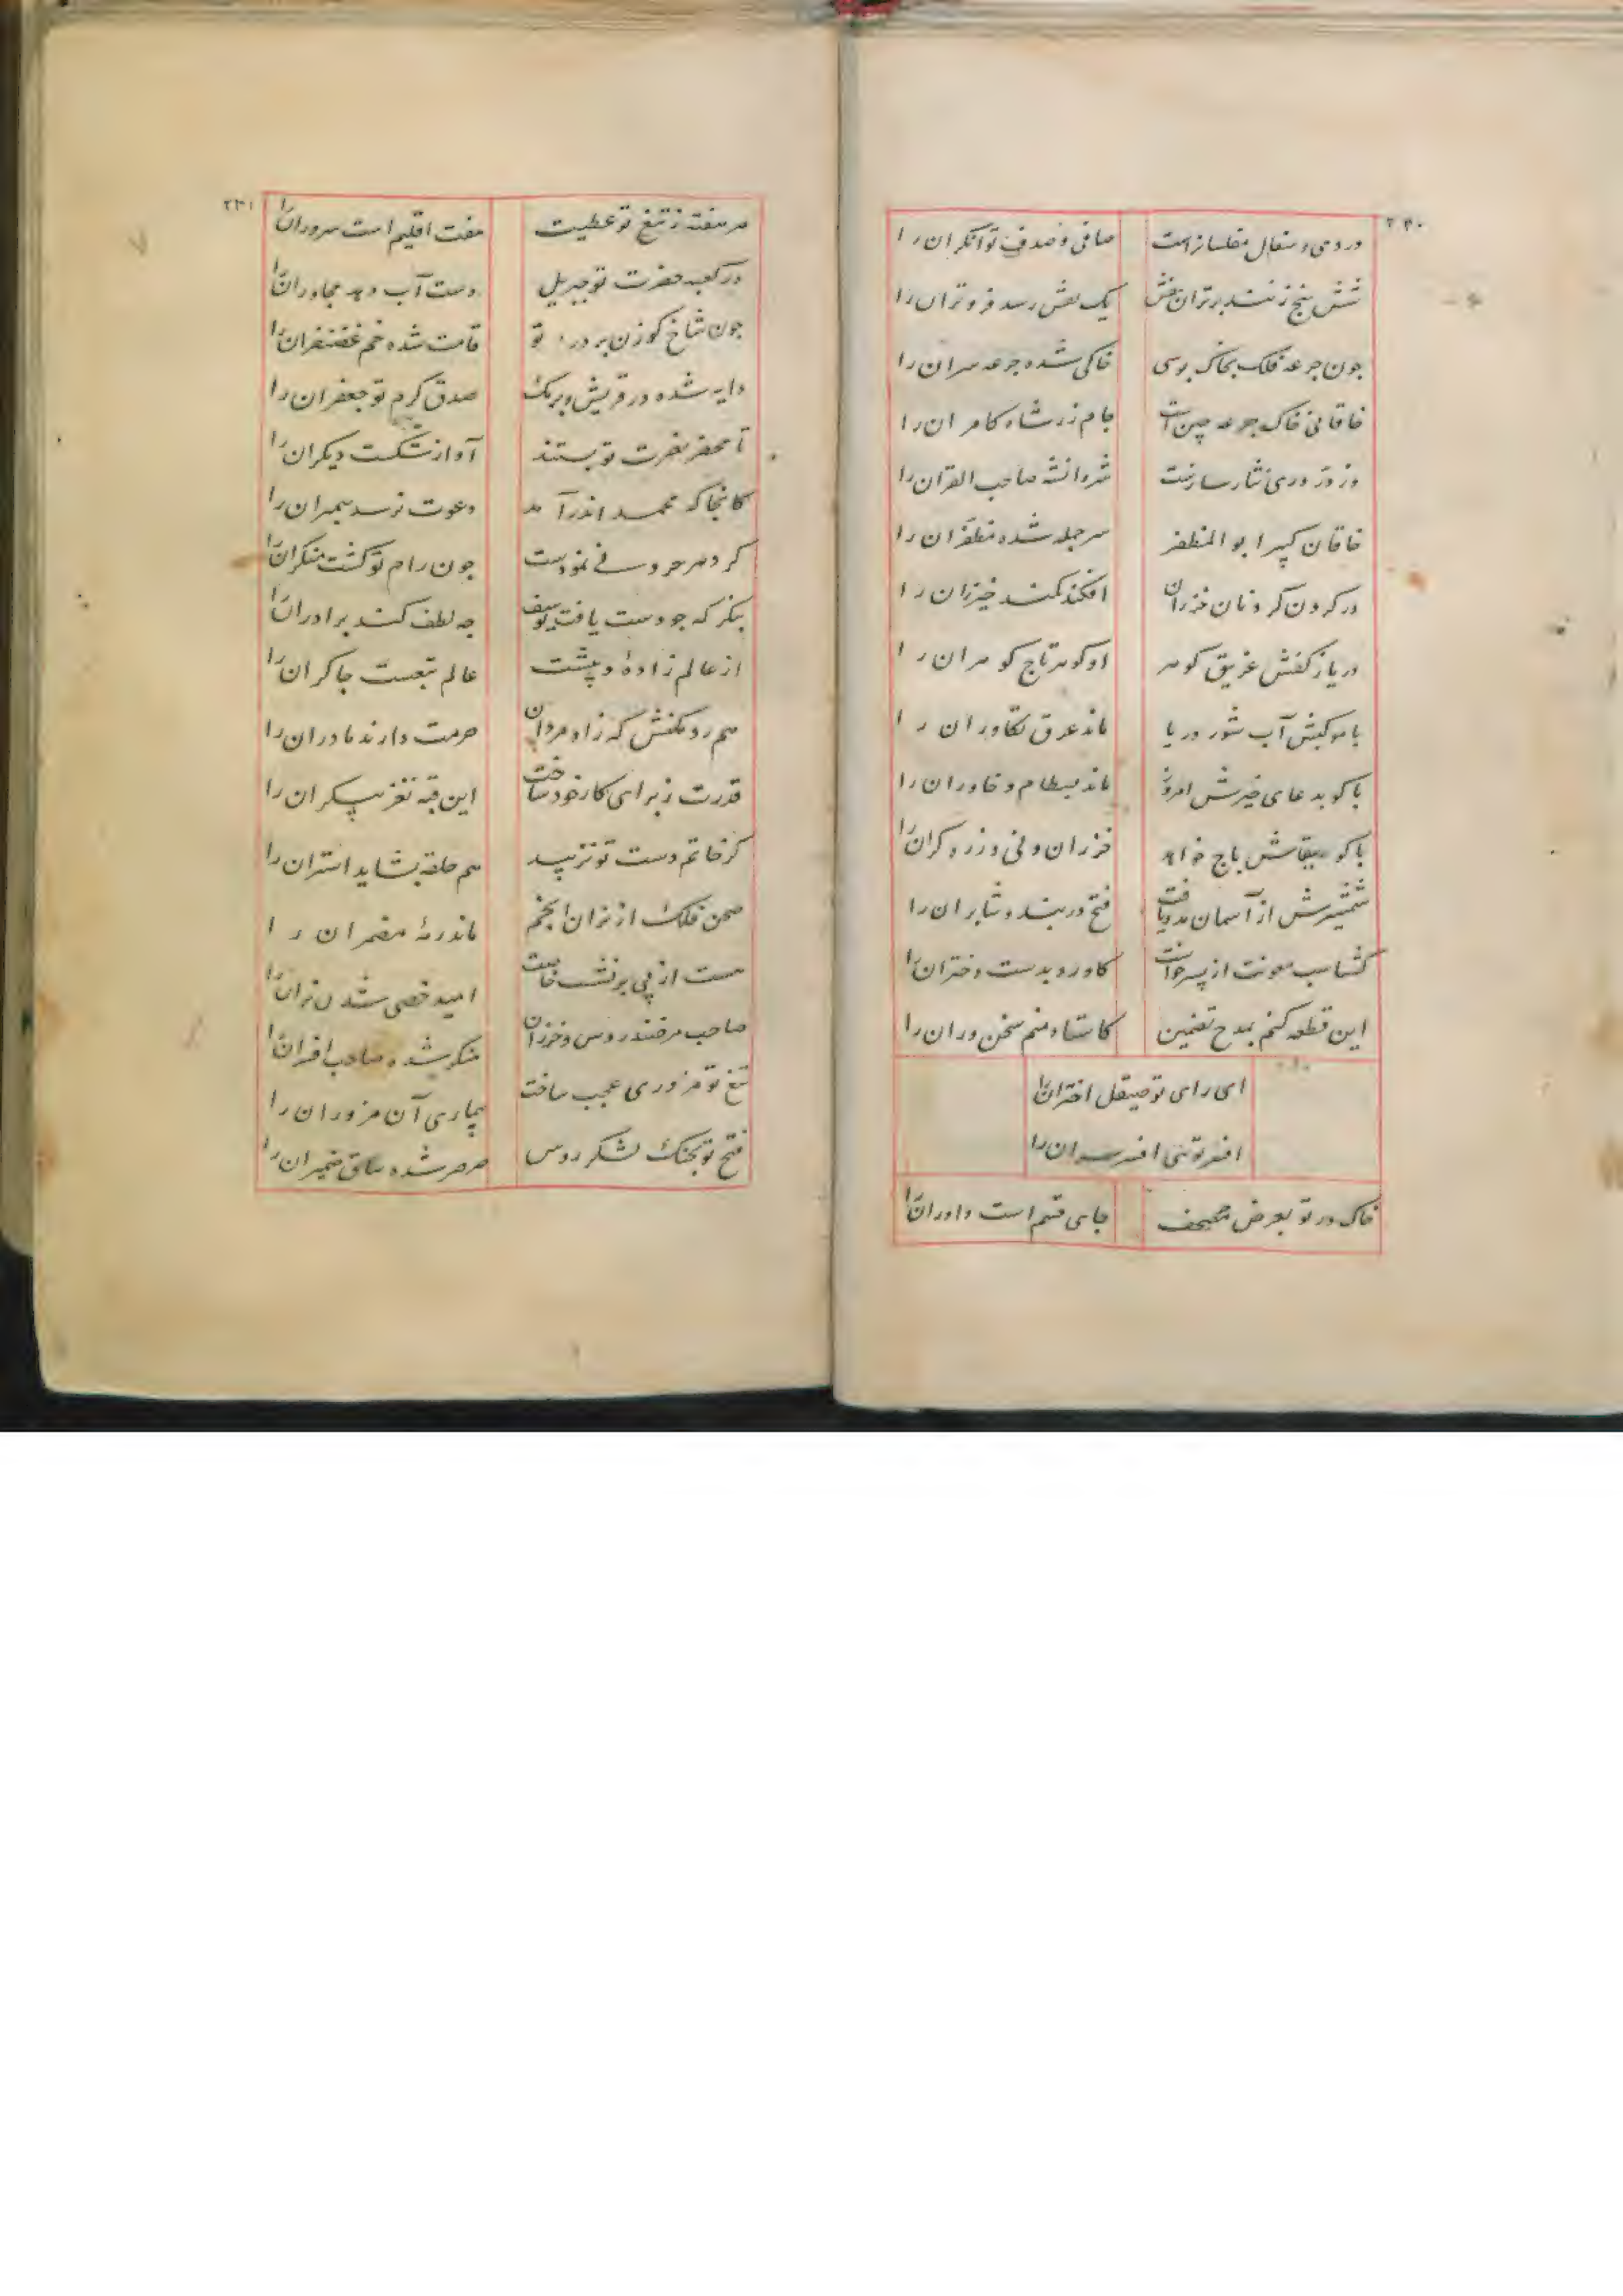 ۲۴۰
دردمی و سفال مفلسانراست صافی و صدف توانگران را
شش پنج زنند برتران نقش یک نقش رسد فروتران را
جون جرعه فلک بخاک بوسی خاکی شده جرعه سران را
خاقانی خاک جرعه چین است جام زر شاه کامران را
وز در دری نثار سازست شروانشه صاحب القران را
خاقان کبیر ابو المظفر سر جمله شده مظفران را
در کردن کردنان خزران افکند کمند خیزران را
دریا ز کفش غریق کوهر او کوهر تاج کوهران را
با موکبش آب شور دریا ماند عرق تکاوران را
باکو بدعای خیرش امروز ماند بسطام و خاوران را
باکو ببقاش باج خواهد خزران و ری و زره کران را
شمشیرش از آسمان مدد یافت فتح دربند و شابران را
کشتاسب معونت از پسر خواست کاورد بدست دختران را
این قطعه کنم بمدح تضمین کاستاد منم سخن وران را
ای رای تو صیقل اختران را
افسر توئی افسر سران را
خاک در تو بعرض مصحف جای قسم است داوران را
۲۴۱
هر هفته ز تیغ تو عطیت هفت اقلیم است سروران را
در کعبه حضرت تو جبریل دست آب دهد مجاوران را
جون شاخ کوزن بر در تو قامت شده خم غضنفران را
دایه شده در قریش و برمک صدق کرم تو جعفران را
تا محضر نصرت تو بستند آواز شکست دیکران را
کانجا که محمد اندر آمد دعوت نرسد پیمبران را
کر دهر حرو سئی نمودست جون رام تو کشت منکر آن را
بنکر که جو دست یافت یوسف جه لطف کند برادران را
از عالم زاده و پیشت عالم تبعست جاکران را
هم رد مکنش که زاد مردان حرمت دارند مادران را
قدرت ز برای کار خود ساخت این قبه نغز بیکران را
کز خاتم دست تو نزیبد هم حلقه بشاید استران را
صحن فلک از نران انجم ماند رمهٔ مضمران را
هست از پی بر نشست خاصت امید خصی شدن نران را
صاحب مرضند روس و خزران منکر شده صاحب افسران را
تیغ تو مزوری عجب ساخت بیماری آن مزوران را
فتح تو بجنک لشکر روس صرصر شده ساق ضمیران را